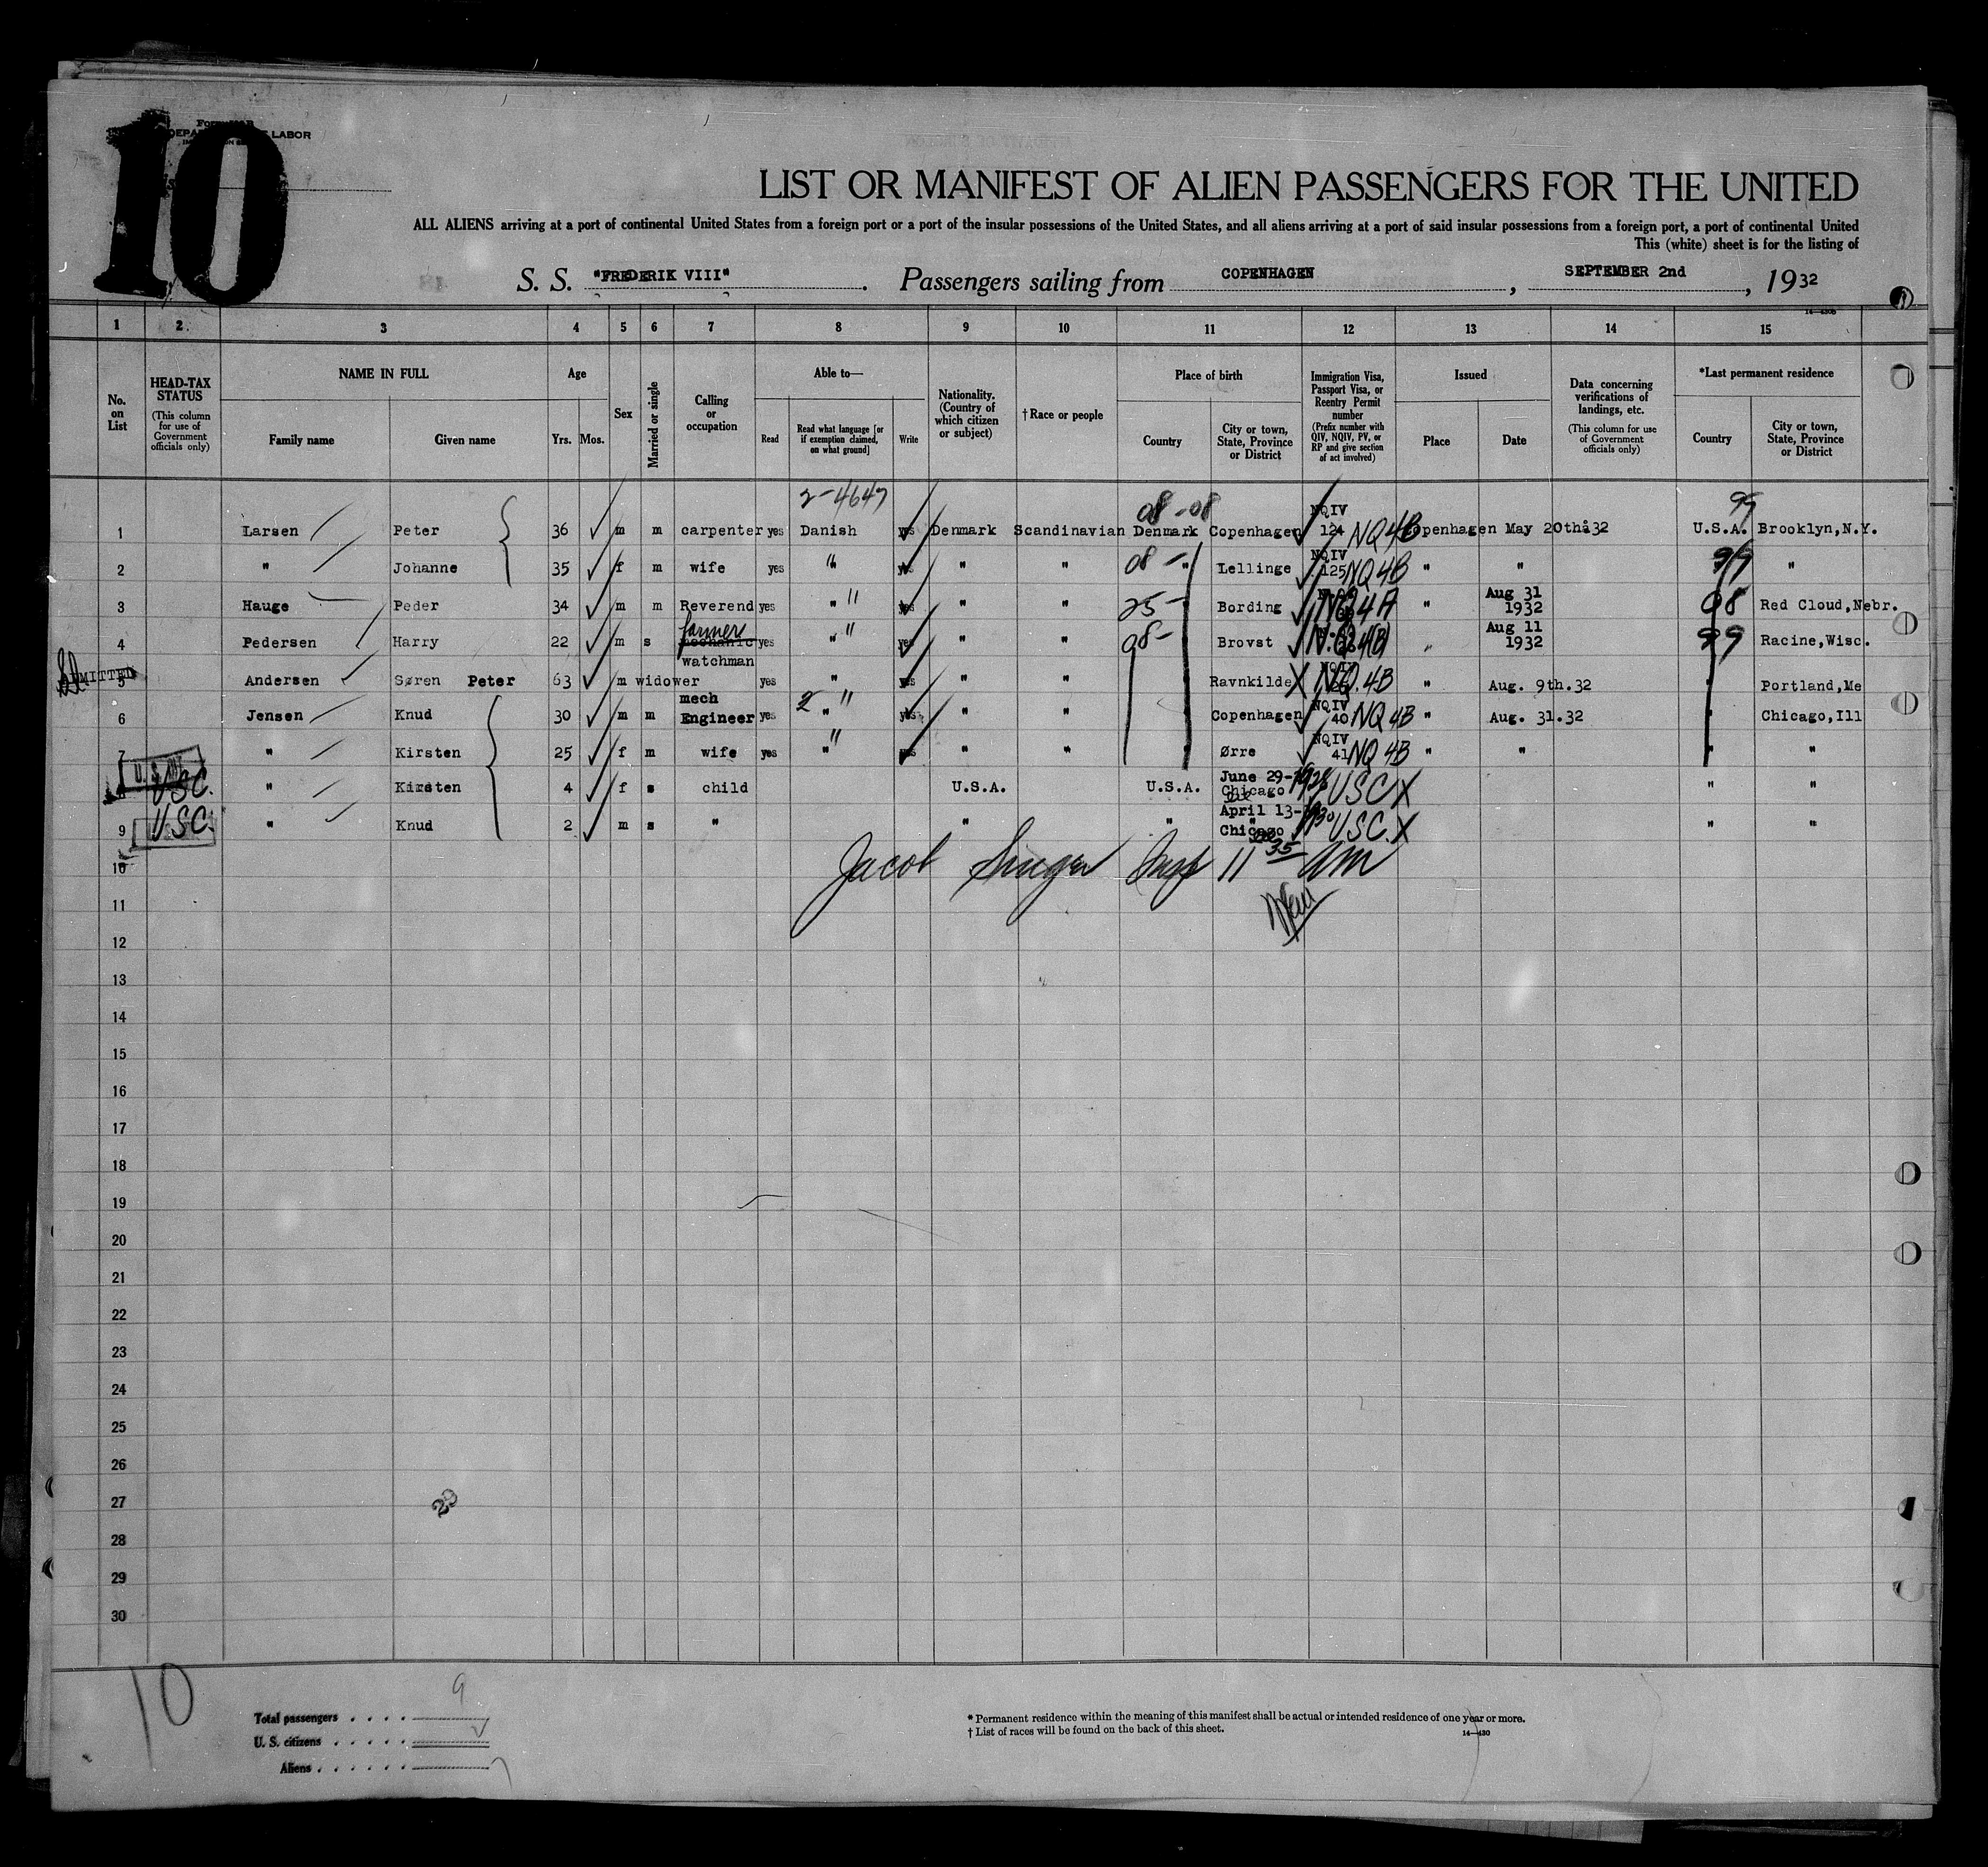 10
LABOR
LIST OR MANIFEST OF ALIEN PASSENGERS FOR THE UNITED
ALL ALIENS arriving at a port of continental United States from a foreign port or a port of the insular possessions of the United States, and all aliens arriving at a port of said insular possessions from a foreign port, a port of continental United
This (white) sheet is for the listing of
S. S. "FREDERIK VIII". Passengers sailing from COPENHAGEN, SEPTEMBER 2nd, 1932
1 2 3 4 5 6 7 8 9 10 11 12 13 14 15
No. on List
HEAD-TAX STATUS (This column for use of Government officials only)
NAME IN FULL Family name Given name
Age Yrs. Mos.
Sex
Married or single
Calling or occupation
Able to— Read Read what language [or if exemption claimed, on what ground] Write
Nationality. (Country of which citizen or subject)
†Race or people
Place of birth Country City or town, State, Province or District
Immigration Visa, Passport Visa, or Reentry Permit number (Prefix number with QIV, NQIV, PV, or RP and give section of act involved)
Issued Place Date
Data concerning verifications of landings, etc. (This column for use of Government officials only)
*Last permanent residence Country City or town, State, Province or District
2-4647 08-08 99
1 Larsen Peter 36 m m carpenter yes Danish yes Denmark Scandinavian Denmark Copenhagen NQIV 124 NQ4B Copenhagen May 20th 32 U.S.A. Brooklyn,N.Y.
2 " Johanne 35 f m wife yes " yes " " 08- " Lellinge NQIV 125 NQ4B " " 99 "
3 Hauge Peder 34 m m Reverend yes " yes " " 25- Bording NQ4A " Aug 31 1932 08 Red Cloud,Nebr.
4 Pedersen Harry 22 m s farmer mechanic yes " yes " " 08- Brovst NQ4(B) " Aug 11 1932 99 Racine,Wisc.
5 Andersen Søren Peter 63 m widower watchman yes " yes " " Ravnkilde NQ.4B " Aug. 9th.32 Portland,Me
6 Jensen Knud 30 m m mech Engineer yes 2 " yes " " Copenhagen NQIV 40 NQ4B " Aug. 31.32 " Chicago,Ill
7 " Kirsten 25 f m wife yes " yes " " " Ørre NQIV 41 NQ4B " " " "
8 USC. " Kirsten 4 f s child U.S.A. U.S.A. June 29-1928 Chicago USC X " "
9 USC. " Knud 2 m s " " " April 13-1930 Chicago USC. X " "
10 Jacob Singer Insp 11 35 am
11
12
13
14
15
16
17
18
19
20
21
22
23
24
25
26
27
28
29
30
10
Total passengers . . . . 9
U. S. citizens . . . . .
Aliens . . . . . .
* Permanent residence within the meaning of this manifest shall be actual or intended residence of one year or more.
† List of races will be found on the back of this sheet.
14—430